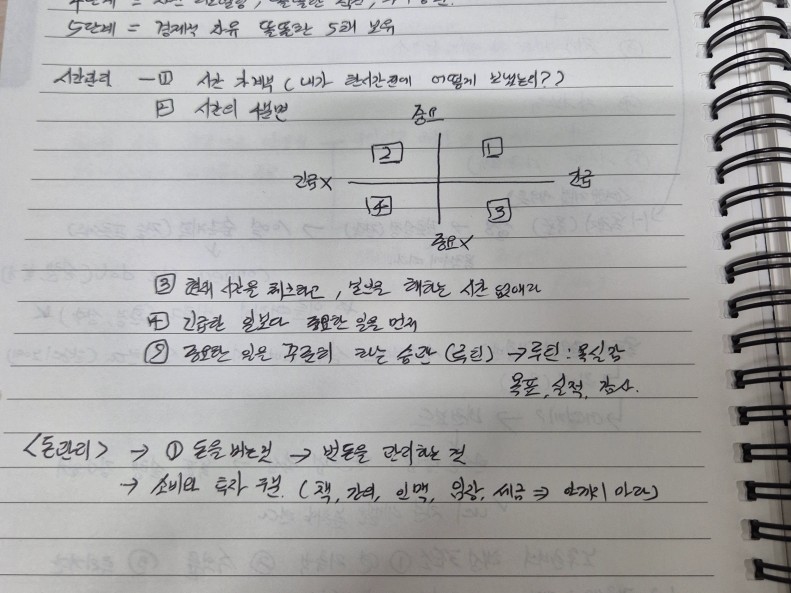 5단계 = 경제적 자유 똘똘한 5채 보유
시간관리 - ① 시간 가계부 (내가 한시간전에 어떻게 보냈는지?)
② 시간의 4분면
중요
2 1
긴급X 긴급
4 3
중요X
③ 현재 시간을 체크하고, 낭비하는 시간 없애라
④ 긴급한 일보다 중요한 일을 먼저
⑤ 중요한 일을 꾸준히 하는 습관 (루틴) → 루틴: 목실감
목표, 실적, 감사.
<돈관리> → ① 돈을 버는것 → 번돈을 관리하는 것
→ 소비와 투자 구분. (책, 강의, 인맥, 임장, 세금 ⇒ 아끼지 마라)